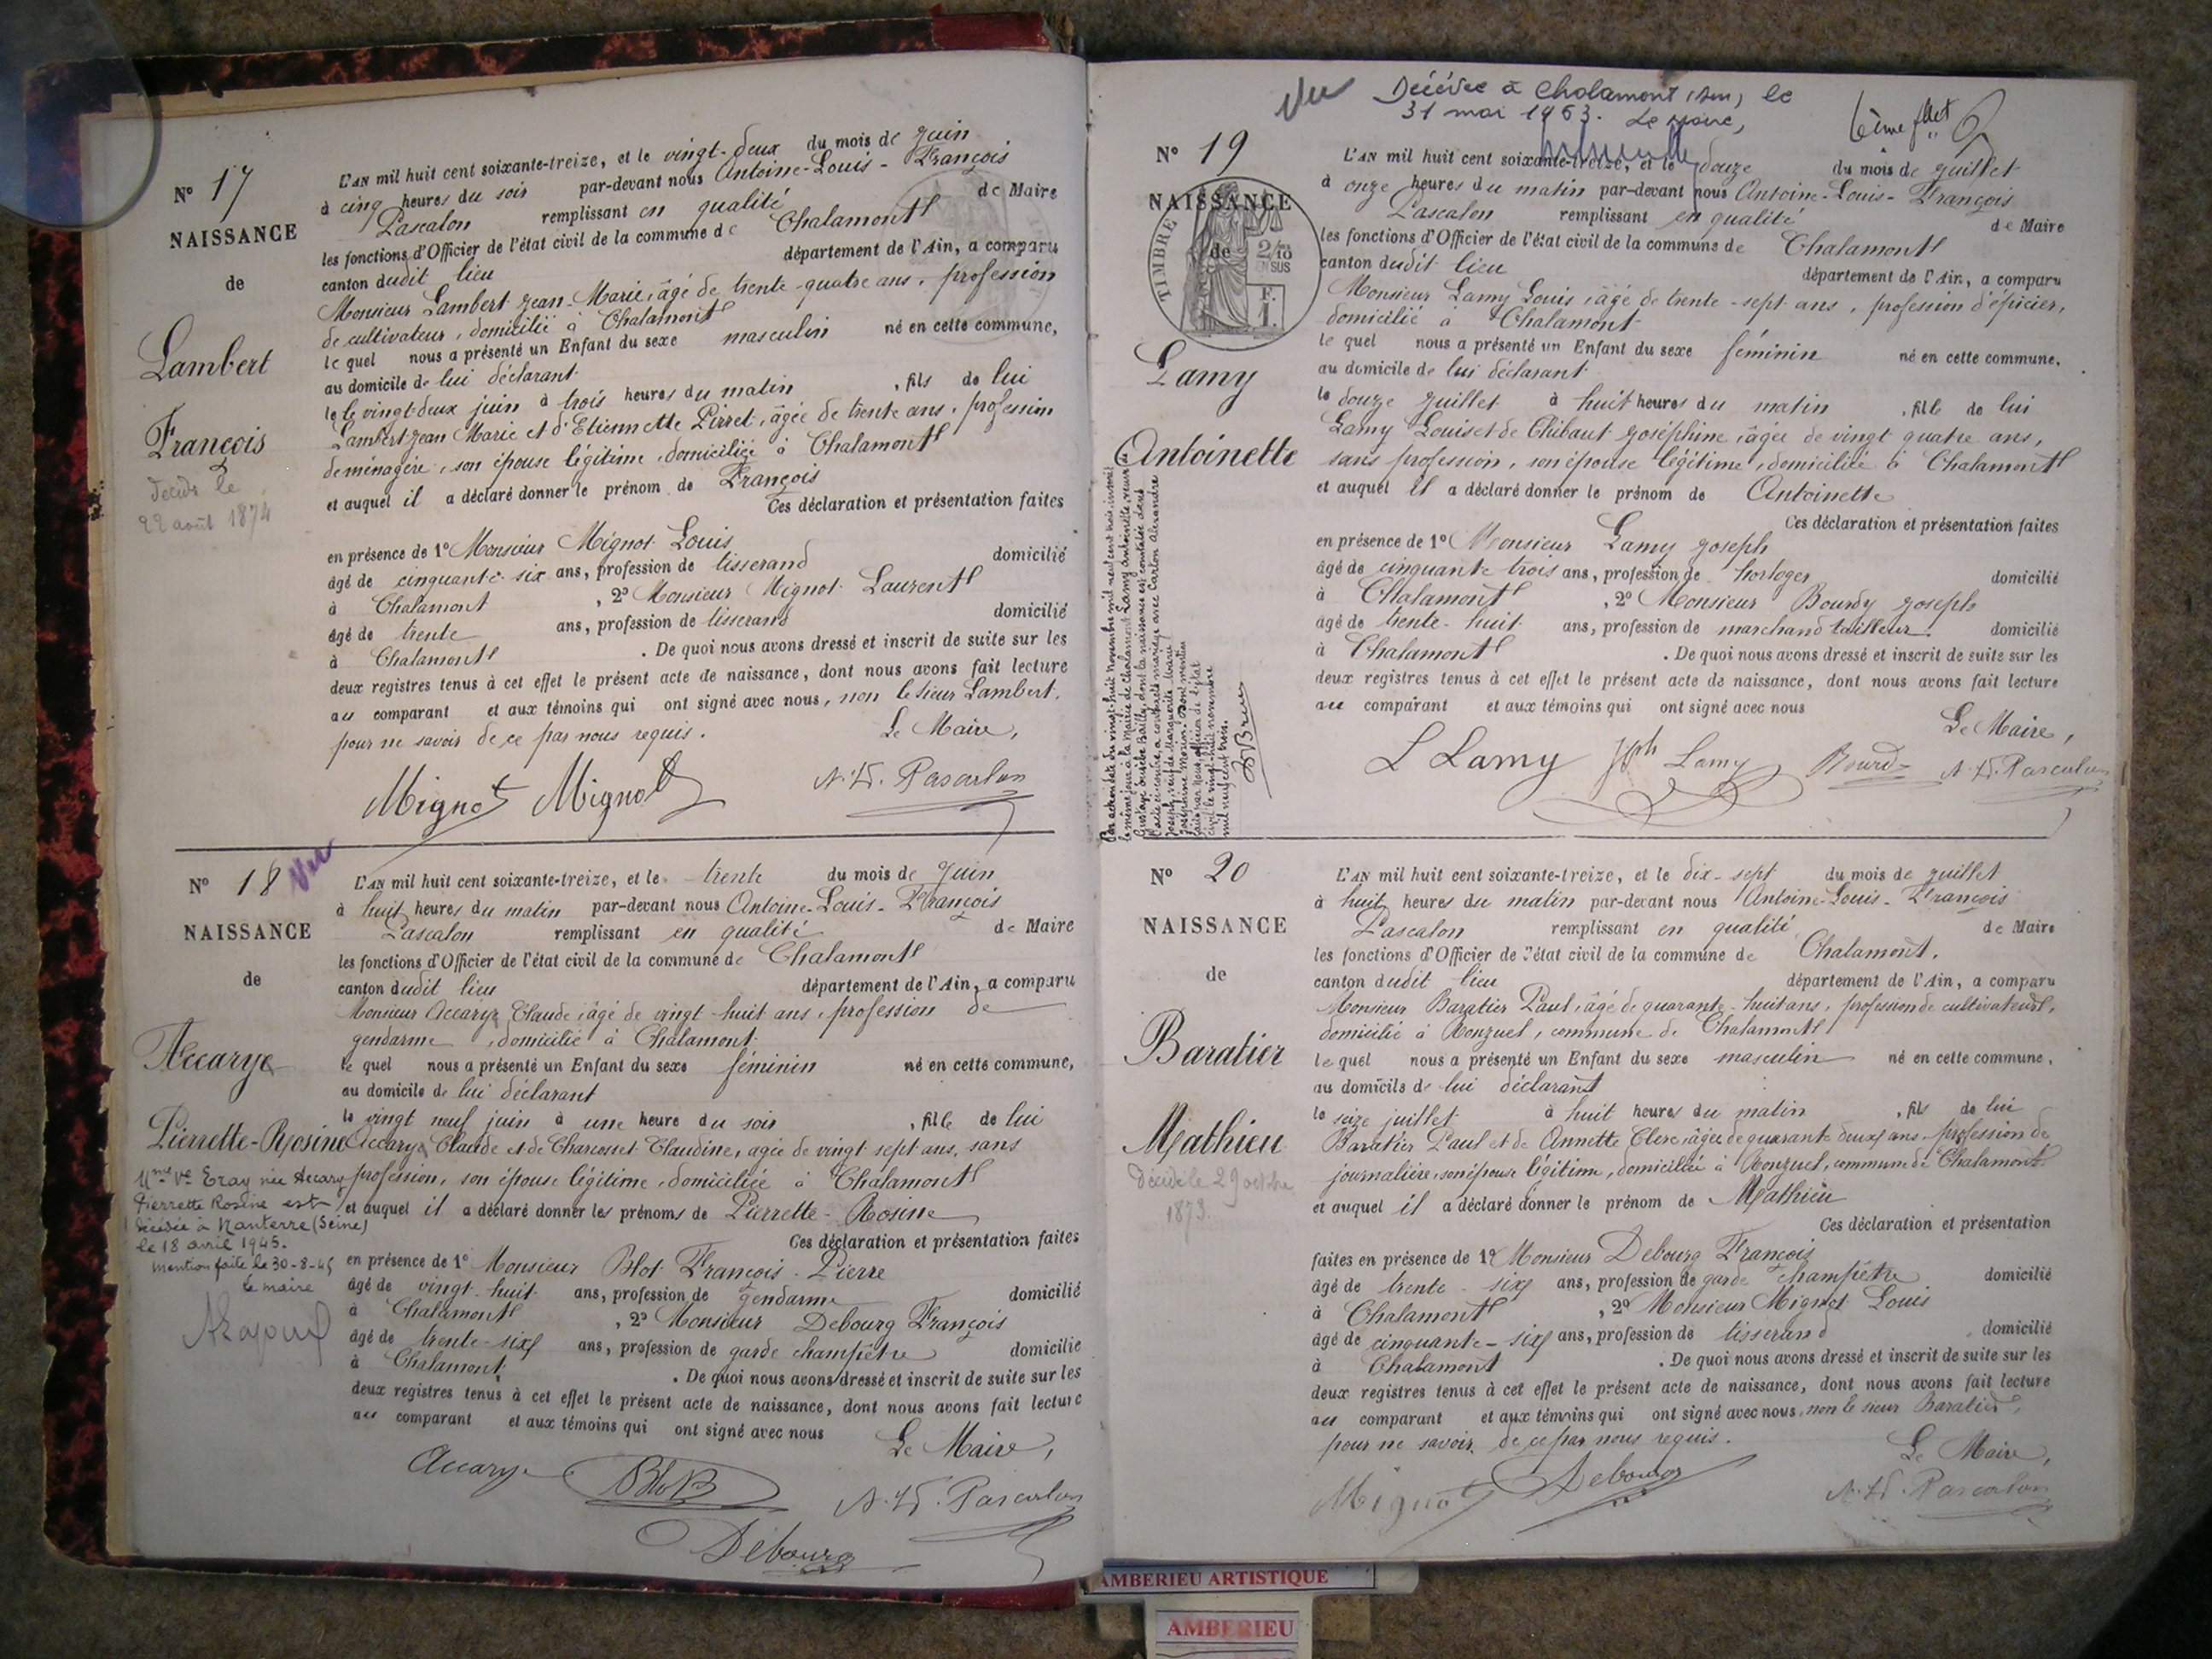 N° 17
NAISSANCE
de
Lambert
François
décédé le
22 août 1874
L'AN mil huit cent soixante-treize, et le vingt-deux du mois de Juin
à cinq heures du soir par-devant nous Antoine-Louis-François
Pascalon remplissant en qualité de Maire
les fonctions d'Officier de l'état civil de la commune de Chalamont
canton dudit lieu département de l'Ain, a comparu
Monsieur Lambert Jean-Marie, âgé de trente-quatre ans, profession
de cultivateur, domicilié à Chalamont
lequel nous a présenté un Enfant du sexe masculin né en cette commune,
au domicile de lui déclarant
le le vingt-deux juin à trois heures du matin, fils de lui
Lambert Jean Marie et d'Etiennette Pirret, âgée de trente ans, profession
de ménagère, son épouse légitime, domiciliée à Chalamont
et auquel il a déclaré donner le prénom de François
Ces déclaration et présentation faites
en présence de 1° Monsieur Mignot Louis
âgé de cinquante-six ans, profession de tisserand domicilié
à Chalamont, 2° Monsieur Mignot Laurent
âgé de trente ans, profession de tisserand domicilié
à Chalamont. De quoi nous avons dressé et inscrit de suite sur les
deux registres tenus à cet effet le présent acte de naissance, dont nous avons fait lecture
au comparant et aux témoins qui ont signé avec nous, non le sieur Lambert,
pour ne savoir de ce par nous requis.
Le Maire,
Mignot Mignot A. L. F. Pascalon
N° 18 Vu
NAISSANCE
de
Accarye
Pierrette-Rosine
Mme Vve Eray née Accary
Pierrette Rosine est
décédée à Nanterre (Seine)
le 18 avril 1945.
Mention faite le 30-8-45
Le maire
L'AN mil huit cent soixante-treize, et le trente du mois de Juin
à huit heures du matin par-devant nous Antoine-Louis-François
Pascalon remplissant en qualité de Maire
les fonctions d'Officier de l'état civil de la commune de Chalamont
canton dudit lieu département de l'Ain, a comparu
Monsieur Accarye Claude, âgé de vingt-huit ans, profession de
gendarme, domicilié à Chalamont
lequel nous a présenté un Enfant du sexe féminin né en cette commune,
au domicile de lui déclarant
le vingt neuf juin à une heure du soir, fille de lui
Accarye Claude et de Charcosset Claudine, agée de vingt sept ans, sans
profession, son épouse légitime, domiciliée à Chalamont
et auquel il a déclaré donner les prénoms de Pierrette-Rosine
Ces déclaration et présentation faites
en présence de 1° Monsieur Blot François-Pierre
âgé de vingt-huit ans, profession de gendarme domicilié
à Chalamont, 2° Monsieur Debourg François
âgé de trente-six ans, profession de garde champêtre domicilié
à Chalamont. De quoi nous avons dressé et inscrit de suite sur les
deux registres tenus à cet effet le présent acte de naissance, dont nous avons fait lecture
au comparant et aux témoins qui ont signé avec nous
Le Maire,
Accarye Blot A. L. F. Pascalon
Debourg
Vu Décédée à Chalamont (Ain) le
31 mai 1963. Le Maire,
6ème fllet
N° 19
NAISSANCE
de
TIMBRE
2/10
EN SUS
F.
1.
Lamy
Antoinette
L'AN mil huit cent soixante-treize, et le douze du mois de Juillet
à onze heures du matin par-devant nous Antoine-Louis-François
Pascalon remplissant en qualité de Maire
les fonctions d'Officier de l'état civil de la commune de Chalamont
canton dudit lieu département de l'Ain, a comparu
Monsieur Lamy Louis, âgé de trente-sept ans, profession d'épicier,
domicilié à Chalamont
lequel nous a présenté un Enfant du sexe féminin né en cette commune.
au domicile de lui déclarant
le douze Juillet à huit heures du matin, fille de lui
Lamy Louis et de Thibaut Joséphine, âgée de vingt quatre ans,
sans profession, son épouse légitime, domiciliée à Chalamont
et auquel il a déclaré donner le prénom de Antoinette
Ces déclaration et présentation faites
en présence de 1° Monsieur Lamy Joseph
âgé de cinquante trois ans, profession de horloger domicilié
à Chalamont, 2° Monsieur Bourdy Joseph
âgé de trente-huit ans, profession de marchand tailleur domicilié
à Chalamont. De quoi nous avons dressé et inscrit de suite sur les
deux registres tenus à cet effet le présent acte de naissance, dont nous avons fait lecture
au comparant et aux témoins qui ont signé avec nous
Le Maire,
L Lamy Jph Lamy Bourdy A. L. F. Pascalon
Par acte en date du vingt-huit novembre mil neuf cent trois, inscrit
le même jour à la Mairie de Chalamont, Lamy Antoinette, veuve de
Gustave Bailly, dont la naissance est constatée dans
l'acte ci-contre, a contracté mariage avec Carlon Alexandre
Joseph, veuf de Marguerite Marie
Joséphine Morin. Dont mention
faite par Nous, officier de l'état
civil, le vingt-huit novembre
mil neuf cent trois.
N° 20
NAISSANCE
de
Baratier
Mathieu
Décédé le 29 octobre
1873.
L'AN mil huit cent soixante-treize, et le dix-sept du mois de Juillet
à huit heures du matin par-devant nous Antoine-Louis-François
Pascalon remplissant en qualité de Maire
les fonctions d'Officier de l'état civil de la commune de Chalamont.
canton dudit lieu département de l'Ain, a comparu
Monsieur Baratier Paul, âgé de quarante-huit ans, profession de cultivateur,
domicilié à Ronzuel, commune de Chalamont
lequel nous a présenté un Enfant du sexe masculin né en cette commune,
au domicile de lui déclarant
le seize juillet à huit heures du matin, fils de lui
Baratier Paul et de Annette Clerc, âgée de quarante deux ans, profession de
journalière, son épouse légitime, domiciliée à Ronzuel, commune de Chalamont
et auquel il a déclaré donner le prénom de Mathieu
Ces déclaration et présentation
faites en présence de 1° Monsieur Debourg François
âgé de trente-six ans, profession de garde champêtre domicilié
à Chalamont, 2° Monsieur Mignot Louis
âgé de cinquante-six ans, profession de tisserand domicilié
à Chalamont. De quoi nous avons dressé et inscrit de suite sur les
deux registres tenus à cet effet le présent acte de naissance, dont nous avons fait lecture
au comparant et aux témoins qui ont signé avec nous, non le sieur Baratier,
pour ne savoir de ce par nous requis.
Le Maire,
Mignot Debourg A. L. F. Pascalon
AMBERIEU ARTISTIQUE
AMBERIEU